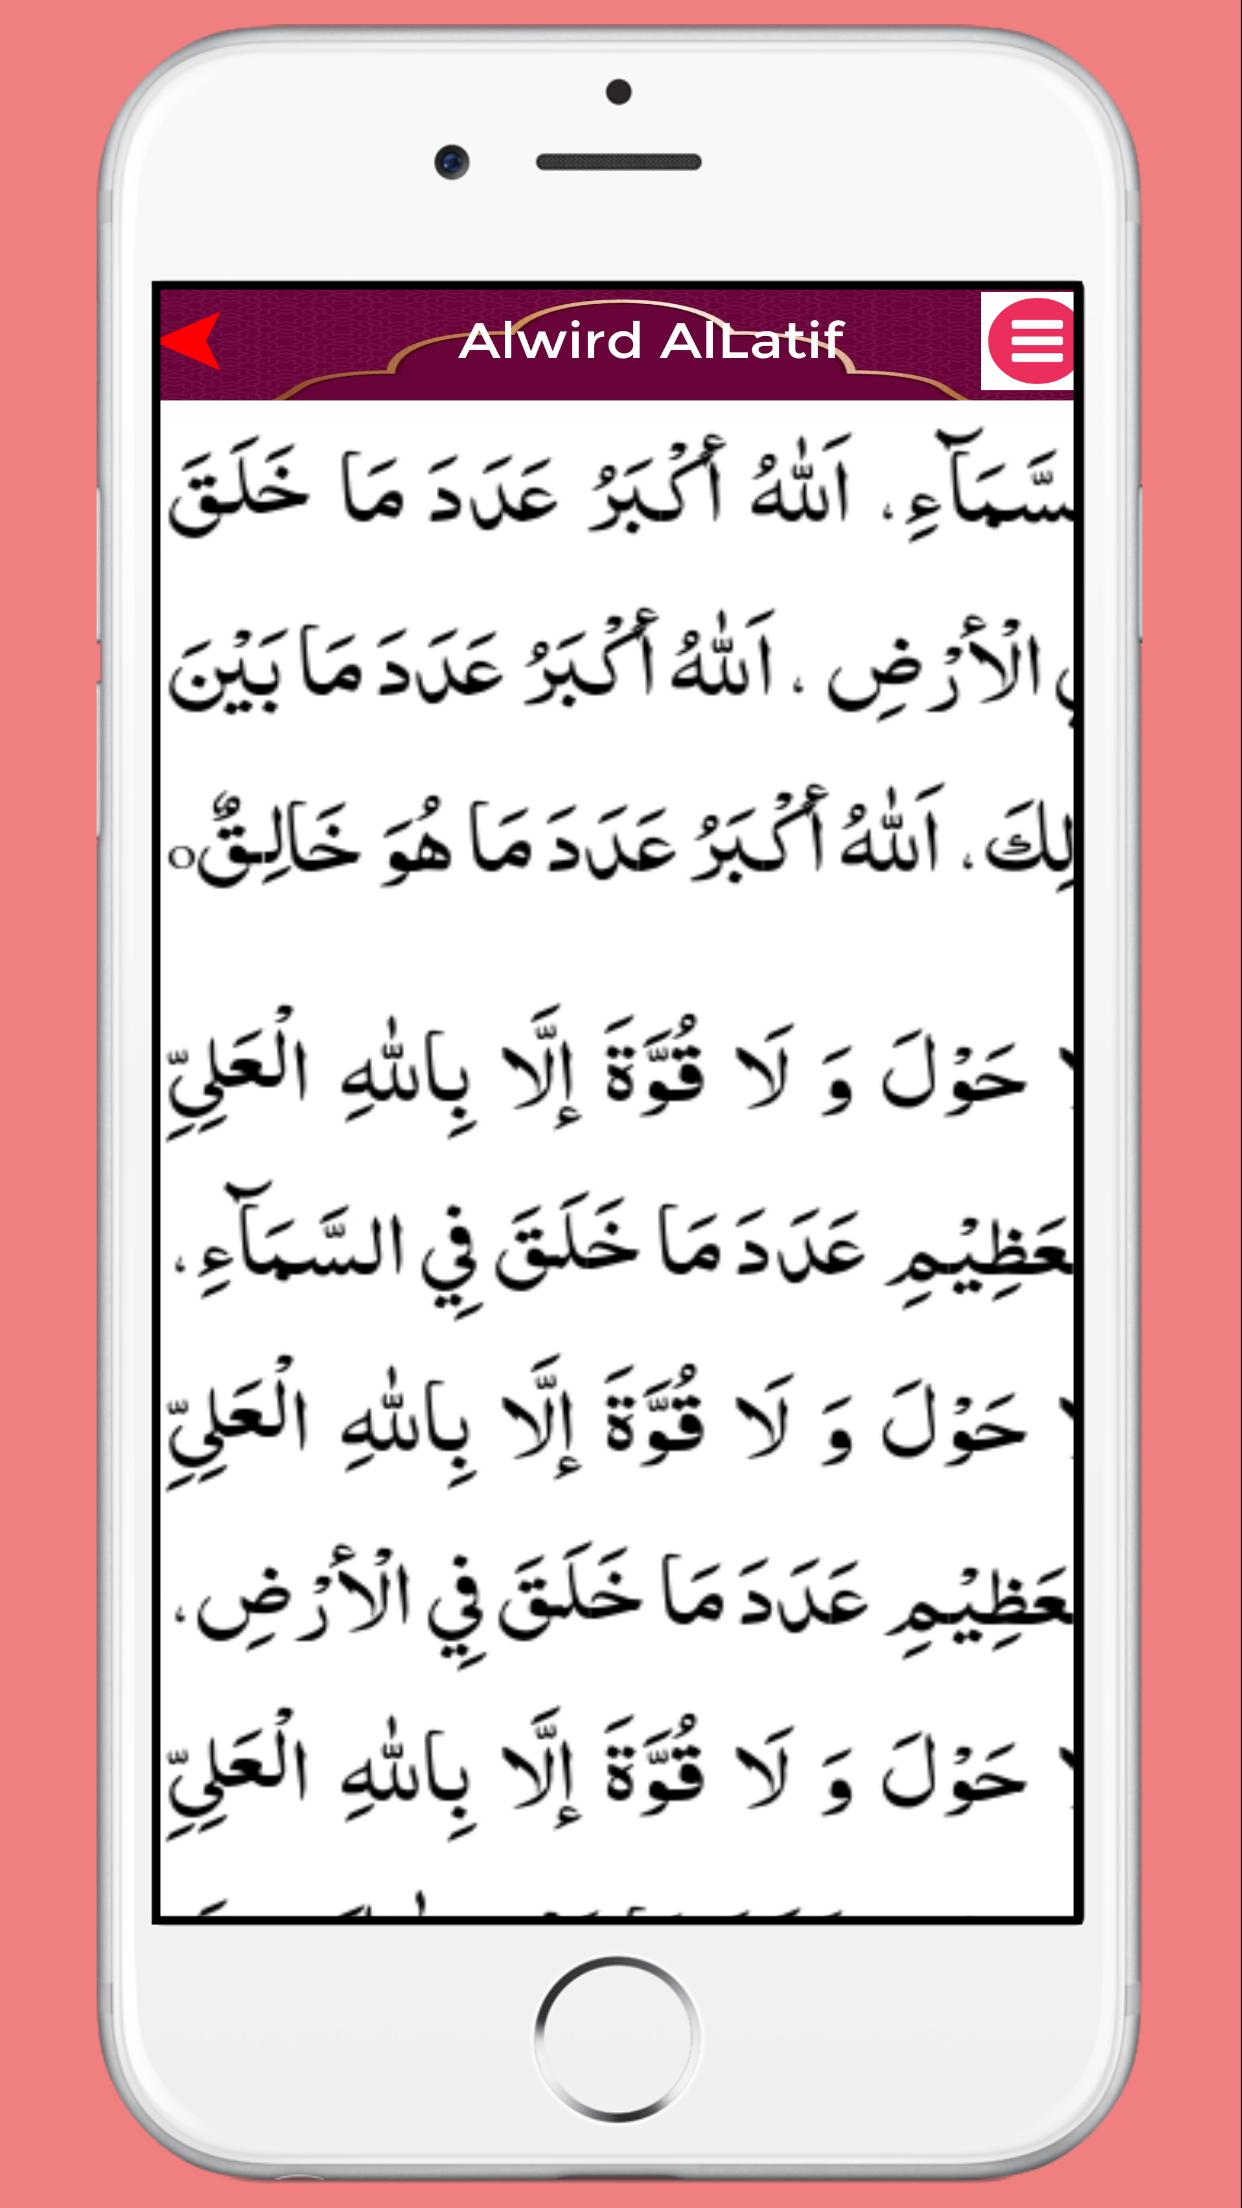 Alwird AlLatif
سَّمَآءِ، اَللّٰهُ أَكْبَرُ عَدَدَ مَا خَلَقَ
الْأَرْضِ، اَللّٰهُ أَكْبَرُ عَدَدَ مَا بَيْنَ
لِكَ، اَللّٰهُ أَكْبَرُ عَدَدَ مَا هُوَ خَالِقٌ
حَوْلَ وَ لَا قُوَّةَ إِلَّا بِاللّٰهِ الْعَلِيِّ
عَظِيْمِ عَدَدَ مَا خَلَقَ فِي السَّمَآءِ،
حَوْلَ وَ لَا قُوَّةَ إِلَّا بِاللّٰهِ الْعَلِيِّ
عَظِيْمِ عَدَدَ مَا خَلَقَ فِي الْأَرْضِ،
حَوْلَ وَ لَا قُوَّةَ إِلَّا بِاللّٰهِ الْعَلِيِّ